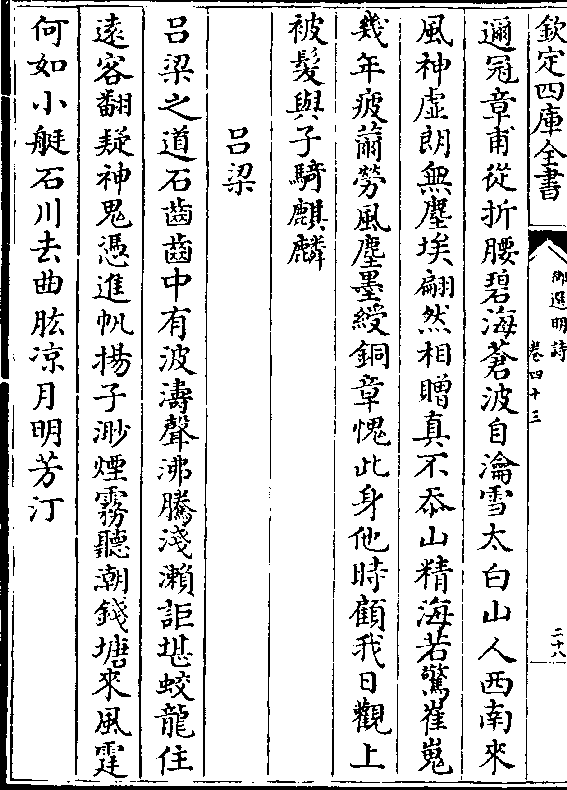 欽定四庫全書
御選明詩
卷四十三
二十八
邇冠章甫從折腰碧海蒼波自瀹雪太白山人西南來
風神虛朗無塵埃翩然相贈真不忝山精海若驚崔嵬
幾年疲薾勞風塵墨綬銅章愧此身他時顧我日觀上
被髮與子騎麒麟
呂梁
呂梁之道石齒齒中有波濤聲沸騰淺瀨詎堪蛟龍住
遠客翻疑神鬼憑進帆揚子渺煙霧聽潮錢塘來風霆
何如小艇石川去曲肱凉月明芳汀